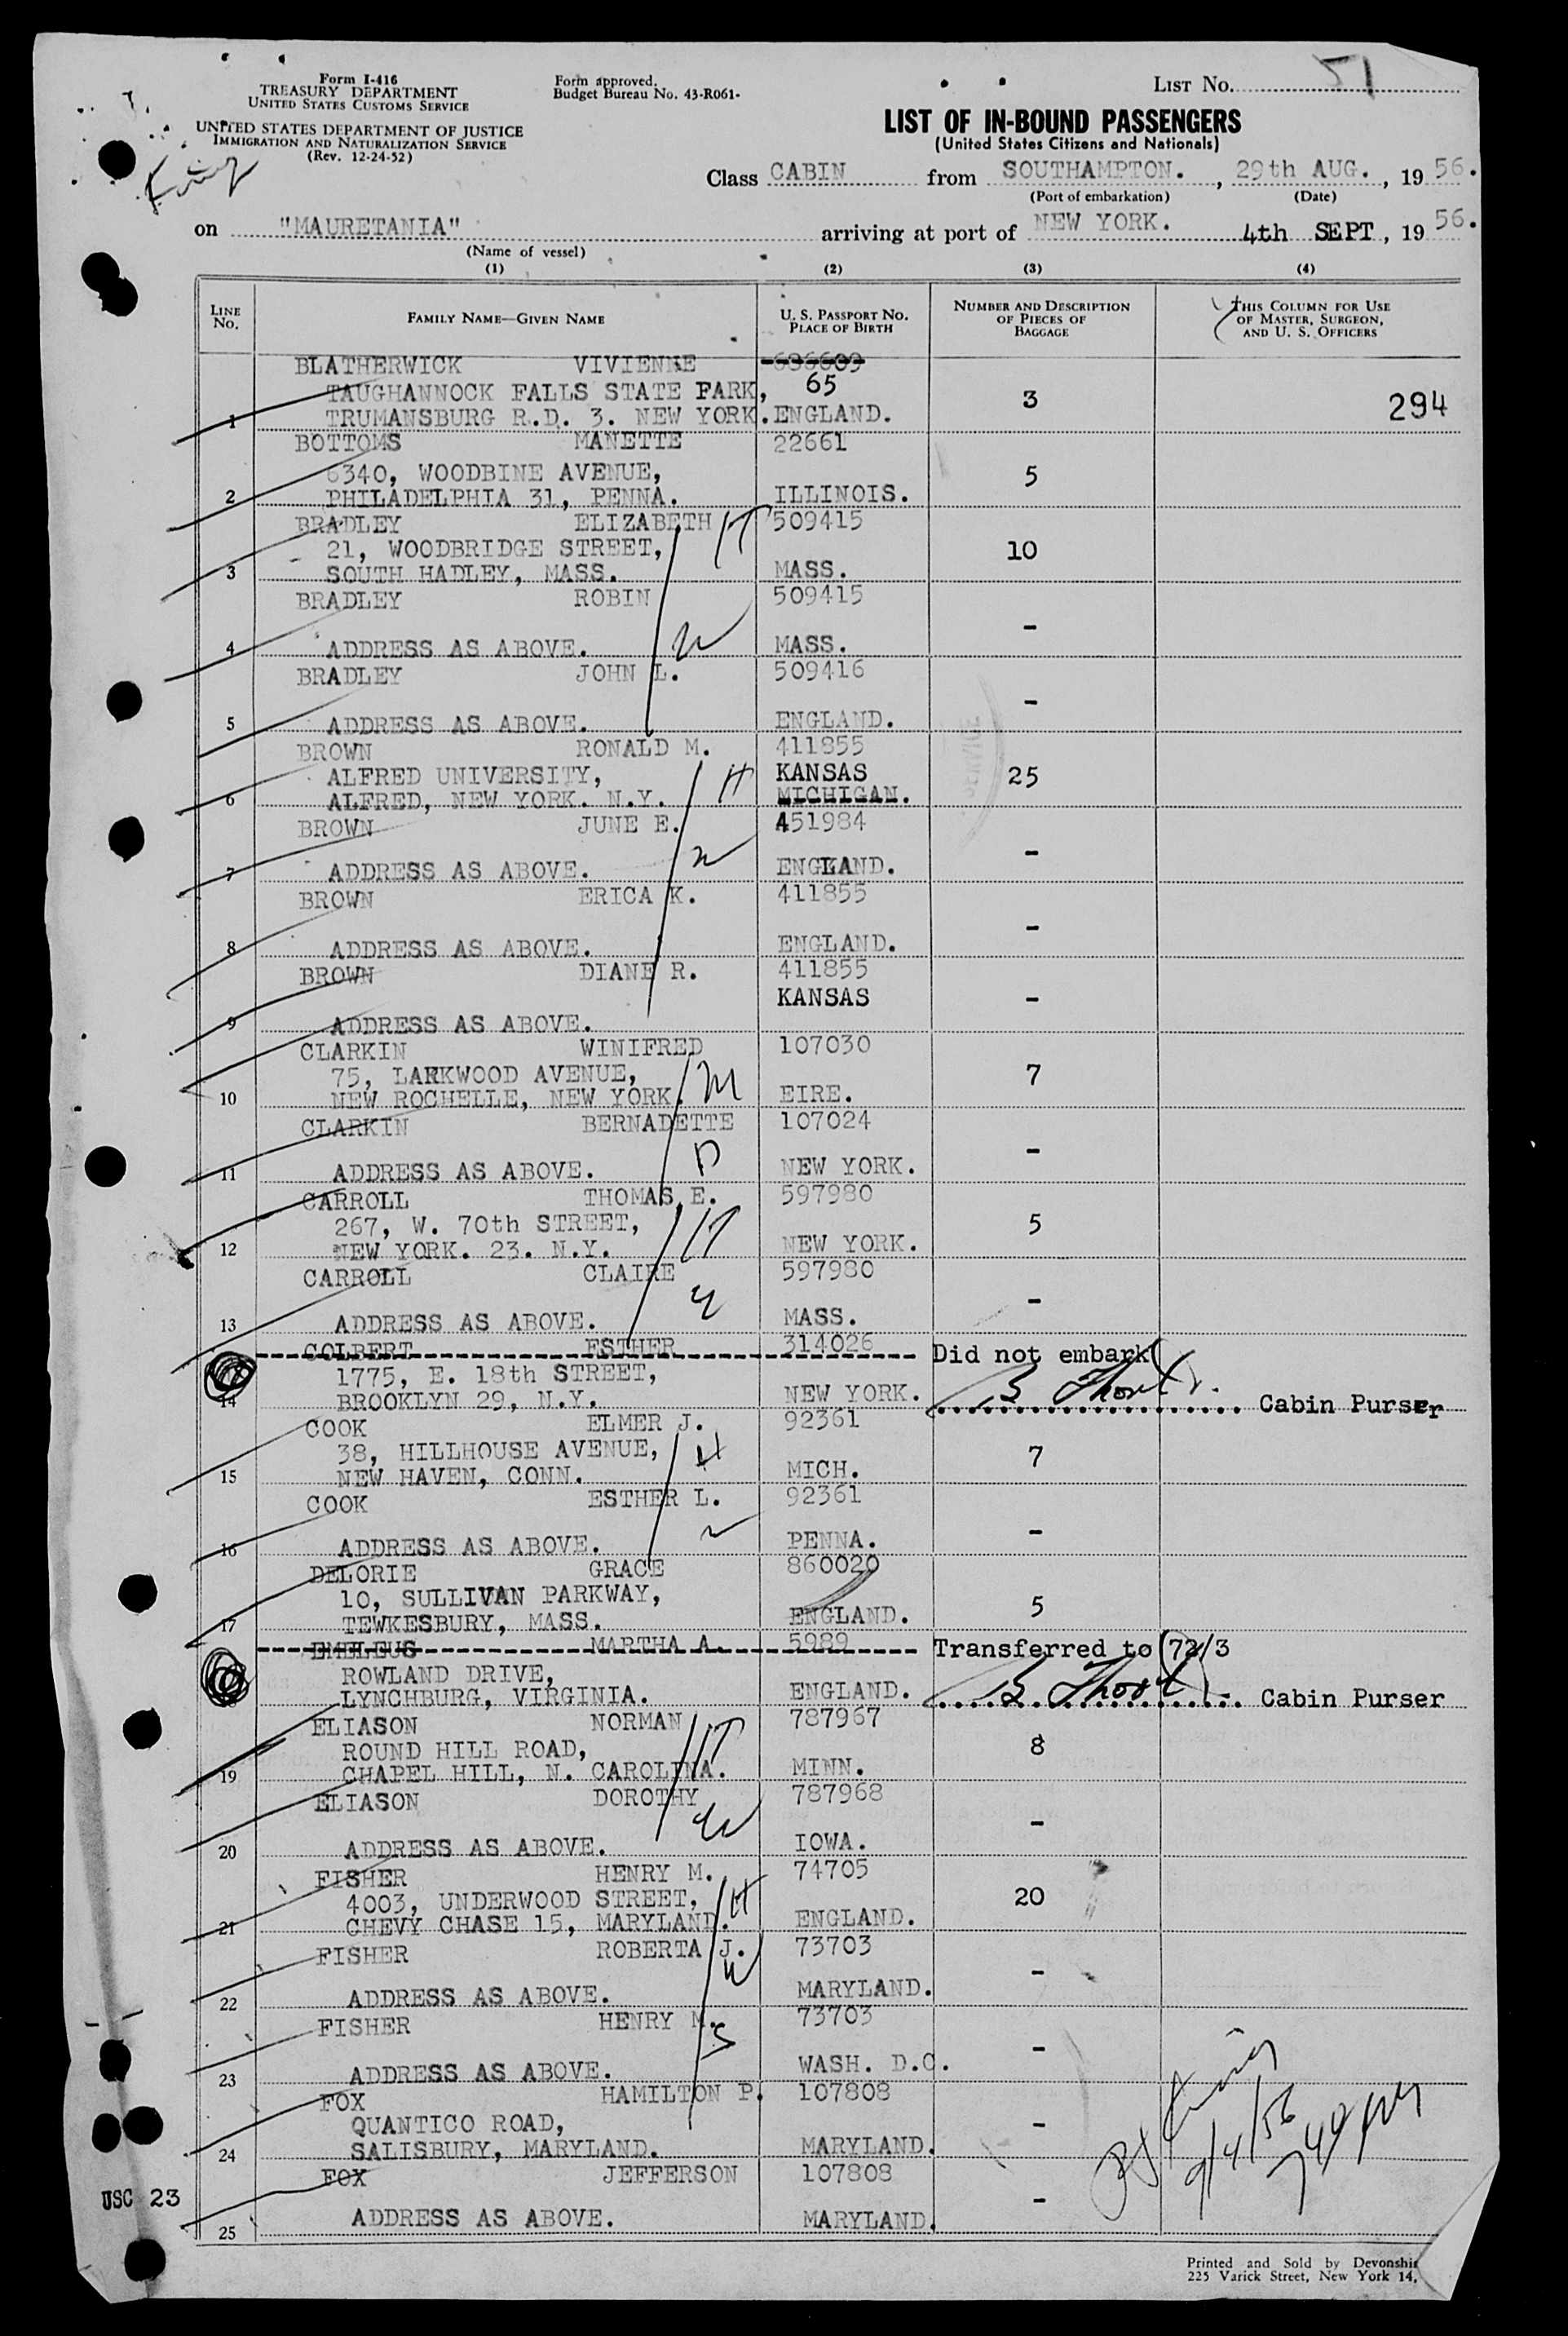 Form I-416
TREASURY DEPARTMENT
UNITED STATES CUSTOMS SERVICE
UNITED STATES DEPARTMENT OF JUSTICE
IMMIGRATION AND NATURALIZATION SERVICE
(Rev. 12-24-52)
Form approved.
Budget Bureau No. 43-R061-
LIST No. 51
LIST OF IN-BOUND PASSENGERS
(United States Citizens and Nationals)
Class CABIN from SOUTHAMPTON. , 29th AUG. , 19 56.
(Port of embarkation) (Date)
on "MAURETANIA" arriving at port of NEW YORK. 4th SEPT , 19 56.
(Name of vessel)
(1) (2) (3) (4)
LINE No. FAMILY NAME—GIVEN NAME U. S. PASSPORT NO. PLACE OF BIRTH NUMBER AND DESCRIPTION OF PIECES OF BAGGAGE THIS COLUMN FOR USE OF MASTER, SURGEON, AND U. S. OFFICERS
BLATHERWICK VIVIENNE 696609
TAUGHANNOCK FALLS STATE PARK, 65 3 294
1 TRUMANSBURG R.D. 3. NEW YORK. ENGLAND.
BOTTOMS MANETTE 22661
6340, WOODBINE AVENUE, 5
2 PHILADELPHIA 31, PENNA. ILLINOIS.
BRADLEY ELIZABETH H 509415
21, WOODBRIDGE STREET, 10
3 SOUTH HADLEY, MASS. MASS.
BRADLEY ROBIN 509415
-
4 ADDRESS AS ABOVE. W MASS.
BRADLEY JOHN L. 509416
-
5 ADDRESS AS ABOVE. ENGLAND.
BROWN RONALD M. 411855
ALFRED UNIVERSITY, H KANSAS 25
6 ALFRED, NEW YORK. N.Y. MICHIGAN.
BROWN JUNE E. 451984
W -
7 ADDRESS AS ABOVE. ENGLAND.
BROWN ERICA K. 411855
-
8 ADDRESS AS ABOVE. ENGLAND.
BROWN DIANE R. 411855
KANSAS -
9 ADDRESS AS ABOVE.
CLARKIN WINIFRED 107030
75, LARKWOOD AVENUE, M 7
10 NEW ROCHELLE, NEW YORK. EIRE.
CLARKIN BERNADETTE 107024
D -
11 ADDRESS AS ABOVE. NEW YORK.
CARROLL THOMAS E. 597980
267, W. 70th STREET, H 5
12 NEW YORK. 23. N.Y. NEW YORK.
CARROLL CLAIRE 597980
W -
13 ADDRESS AS ABOVE. MASS.
COLBERT ESTHER 314026 Did not embark
1775, E. 18th STREET,
14 BROOKLYN 29, N.Y. NEW YORK. Cabin Purser
COOK ELMER J. 92361
38, HILLHOUSE AVENUE, H 7
15 NEW HAVEN, CONN. MICH.
COOK ESTHER L. 92361
W -
16 ADDRESS AS ABOVE. PENNA.
DELORIE GRACE 860020
10, SULLIVAN PARKWAY, 5
17 TEWKESBURY, MASS. ENGLAND.
EMELEUS MARTHA A. 5989 Transferred to 72/3
ROWLAND DRIVE,
LYNCHBURG, VIRGINIA. ENGLAND. Cabin Purser
ELIASON NORMAN H 787967
ROUND HILL ROAD, 8
19 CHAPEL HILL, N. CAROLINA. MINN.
ELIASON DOROTHY 787968
W -
20 ADDRESS AS ABOVE. IOWA.
FISHER HENRY M. 74705
4003, UNDERWOOD STREET, H 20
21 CHEVY CHASE 15, MARYLAND. ENGLAND.
FISHER ROBERTA J. 73703
W -
22 ADDRESS AS ABOVE. MARYLAND.
FISHER HENRY M. 73703
S -
23 ADDRESS AS ABOVE. WASH. D.C.
FOX HAMILTON P. 107808
QUANTICO ROAD, -
24 SALISBURY, MARYLAND. MARYLAND.
FOX JEFFERSON 107808
-
25 ADDRESS AS ABOVE. MARYLAND.
9/4/56
USC 23
Printed and Sold by Devonshir
225 Varick Street, New York 14,